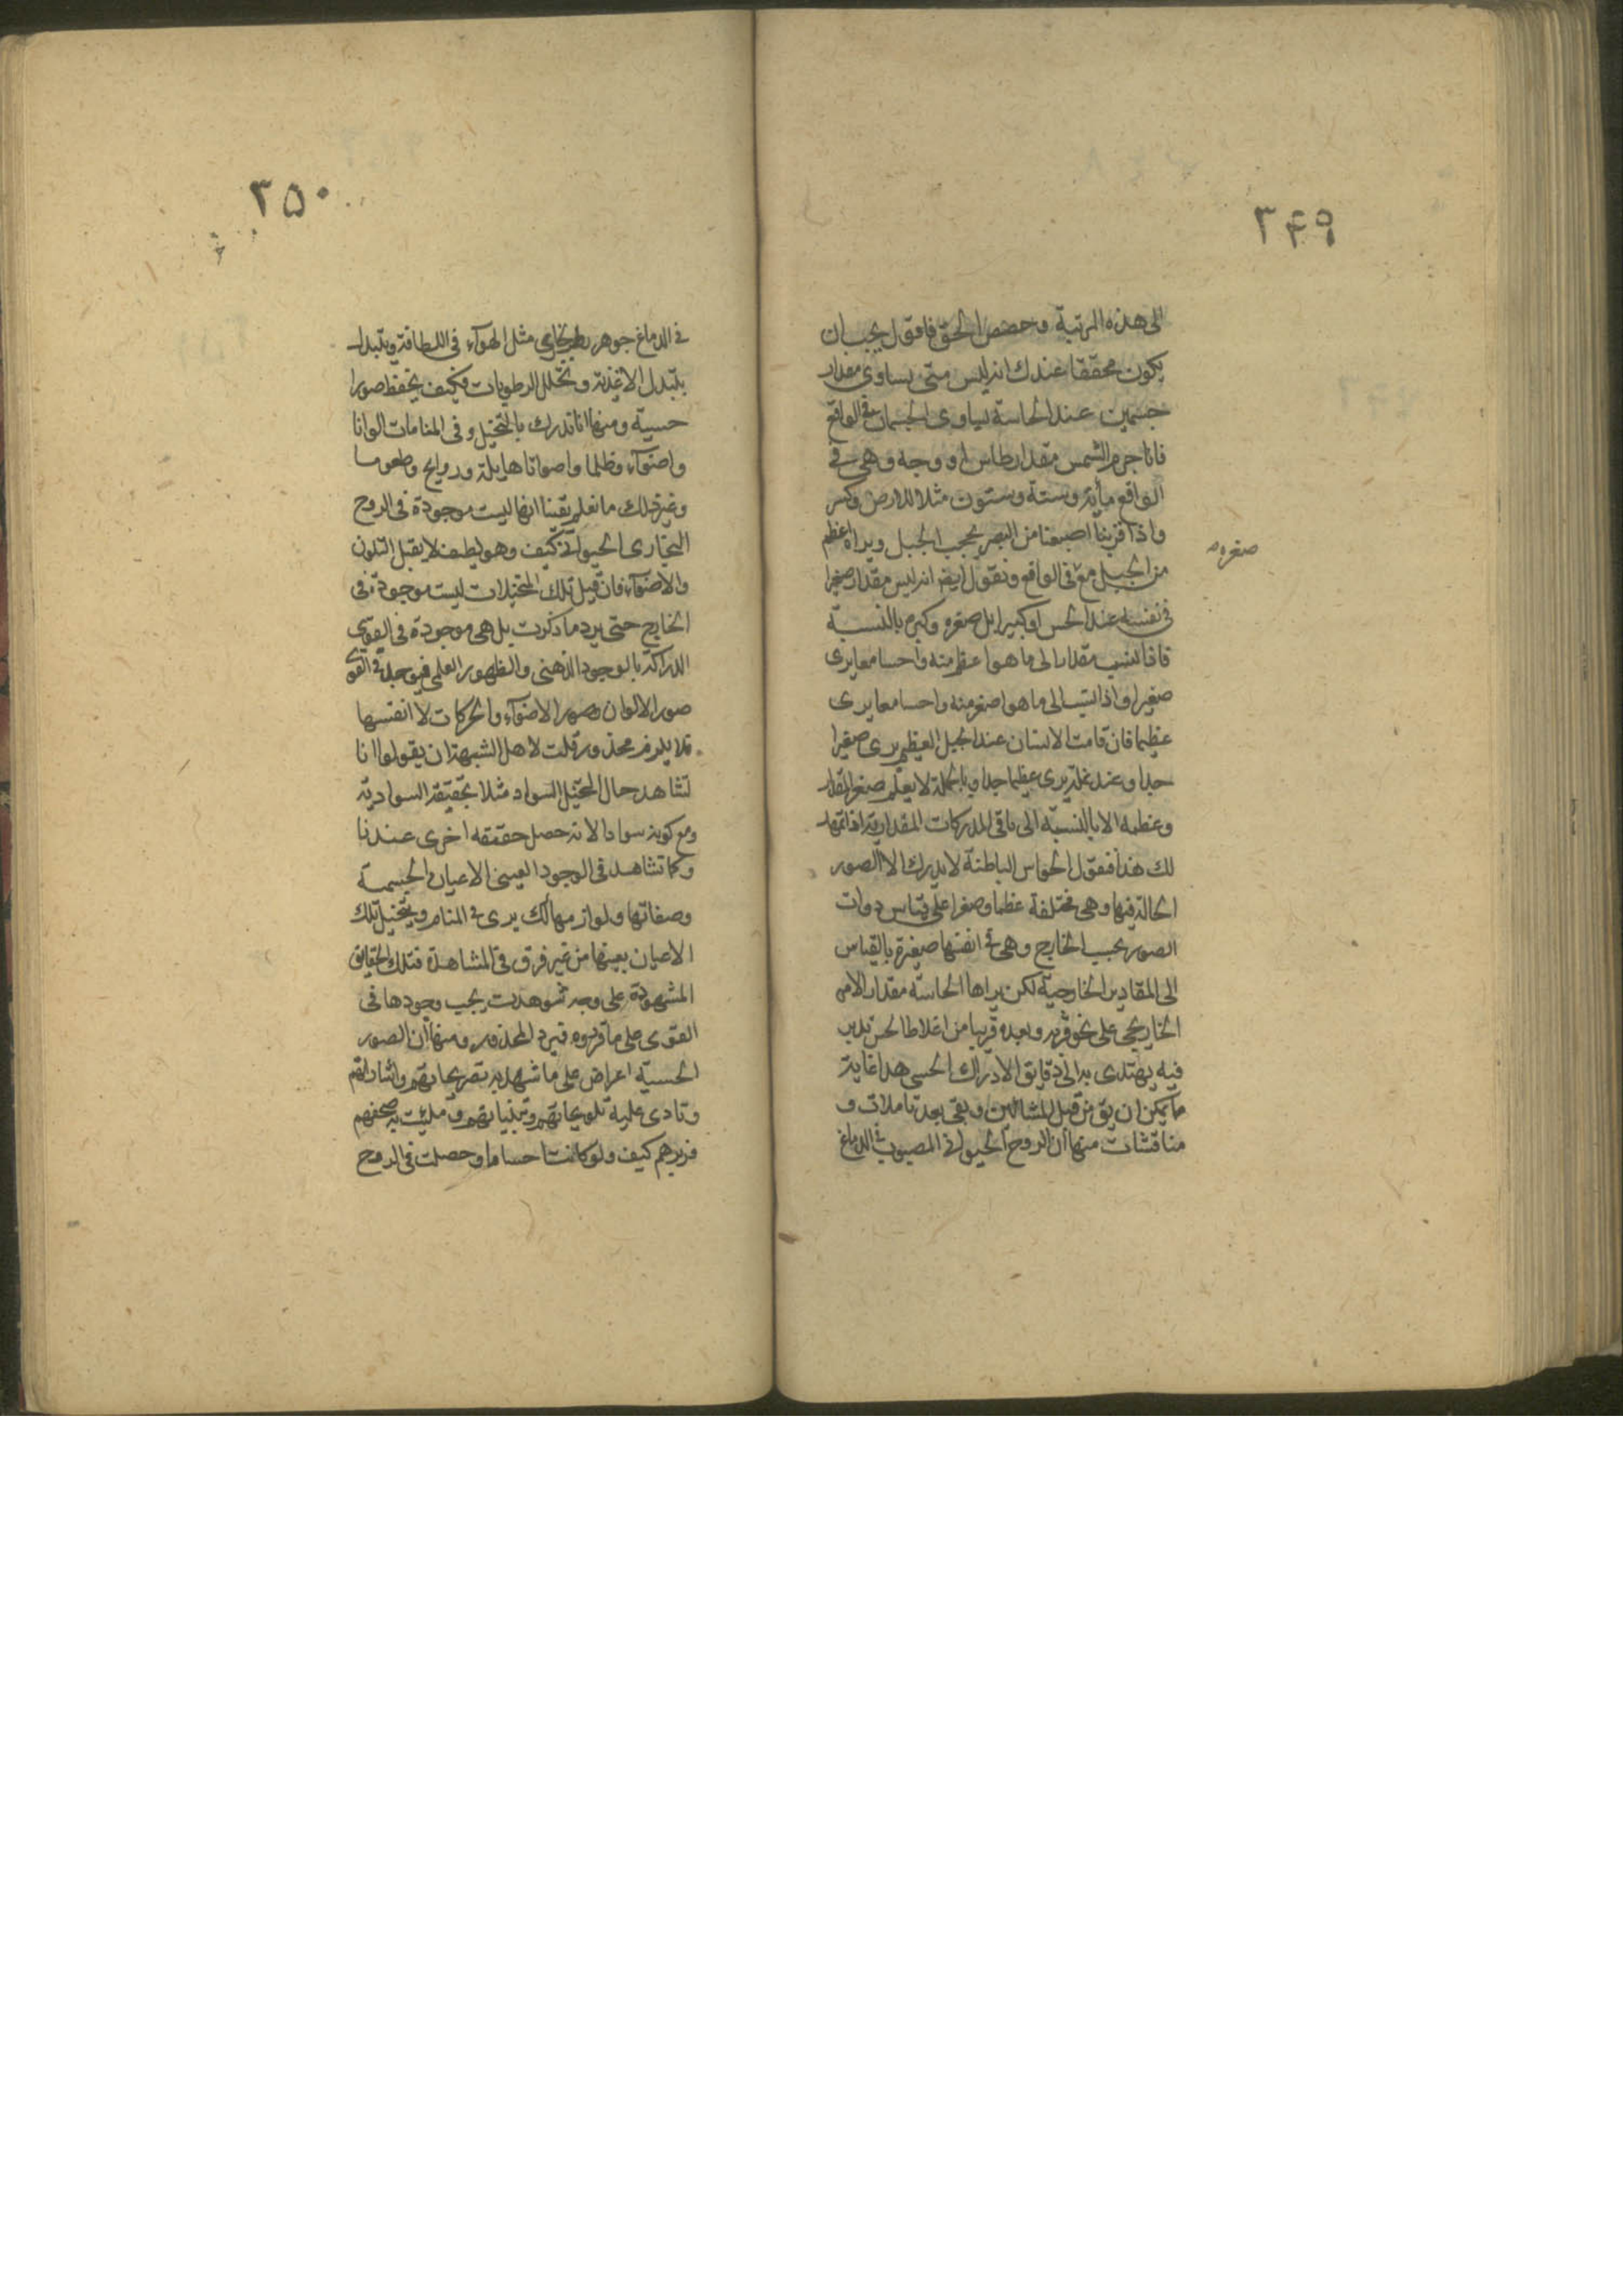 ۳۴۹
الى هذه المرتبة وحصص الحق فاقول يجب ان
يكون محققا عندك انه ليس متى يساوى مقدار
جسمين عند الحاسة يساوى الجسمان فى الواقع
فانا جرم الشمس مقدار طاس او وجه وهى فى
الواقع مأية وستة وستون مثلا للارض وكسر
واذا قربنا اصبعنا من البصر يحجب الجبل ويراه اعظم
صغره
من الجبل مع فى الواقع ونقول ايضا انه ليس مقدار صغيرا
فى نفسه عند الحس او كبيرا بل صغره وكبره بالنسبة
فاذا نسب مقدار الى ما هو اعظم منه واحسا معا يرى
صغيرا واذا نسب الى ما هو اصغر منه واحسا معا يرى
عظيما فان قامت الانسان عند الجبل العظيم يرى صغيرا
جدا وعند نملة يرى عظيما جدا وبالجملة لا يعلم صغر المقدار
وعظمه الا بالنسبة الى باقى المدركات المقدارية اذا تمهد
لك هذا فنقول الحواس الباطنة لا يدرك الا الصور
الحالة فيها وهى مختلفة عظما وصغرا على قياس ذوات
الصور بحسب الخارج وهى فى انفسها صغيرة بالقياس
الى المقادير الخارجية لكن يراها الحاسة مقدار الامر
الخارجى على نحو قربه وبعده قريبا من اغلاط الحس تدبر
فيه يهتدى به الى دقايق الادراك الحسى هذا غاية
ما يمكن ان يق من قبل المشائين وبقى بعد تاملات و
مناقشات منها ان الروح الحيوانى المصبوب فى الدماغ
۳۵۰
فى الدماغ جوهر رطب بخارى مثل الهوآء فى اللطافة ويتبدل
بتبدل الاغذية وتحلل الرطوبات فكيف يحفظ صورا
حسية ومنها انا ندرك بالتخيل وفى المنامات الوانا
واضوآء وظلما واصواتا هايلة وروايح وطعوما
وغير ذلك ما نعلم يقينا انها ليست موجودة فى الروح
البخارى الحيوانى كيف وهو لطيف لا يقبل التلون
والاضوآء فان قيل تلك المتخيلات ليست موجودة فى
الخارج حتى يرد ما ذكرت بل هى موجودة فى القوى
الدراكة بالوجود الذهنى والظهور العلمى فيوجد فى القوى
صور الالوان وصور الاضوآء والحركات لا انفسها
فلا يلزم محذور قلت لاهل الشبهة ان يقولوا انا
نشاهد حال التخيل السواد مثلا بحقيقة السوادية
ومع كونه سوادا لا انه حصل حقيقه اخرى عندنا
وكما نشاهد فى الوجود العينى الاعيان الجسمية
وصفاتها ولوازمها كك يرى فى المنام ويتخيل تلك
الاعيان بعينها من غير فرق فى المشاهدة فتلك الحقايق
المشهودة على وجه شوهدت يجب وجودها فى
القوى على ما قرروه فيرد المحذور ومنها ان الصور
الحسية اعراض على ما شهد به تصريحاتهم واشاراتهم
وتنادى عليه تلويحاتهم وتنبيهاتهم وملئت به صحفهم
وزبرهم كيف ولو كانت اجساما وحصلت فى الروح